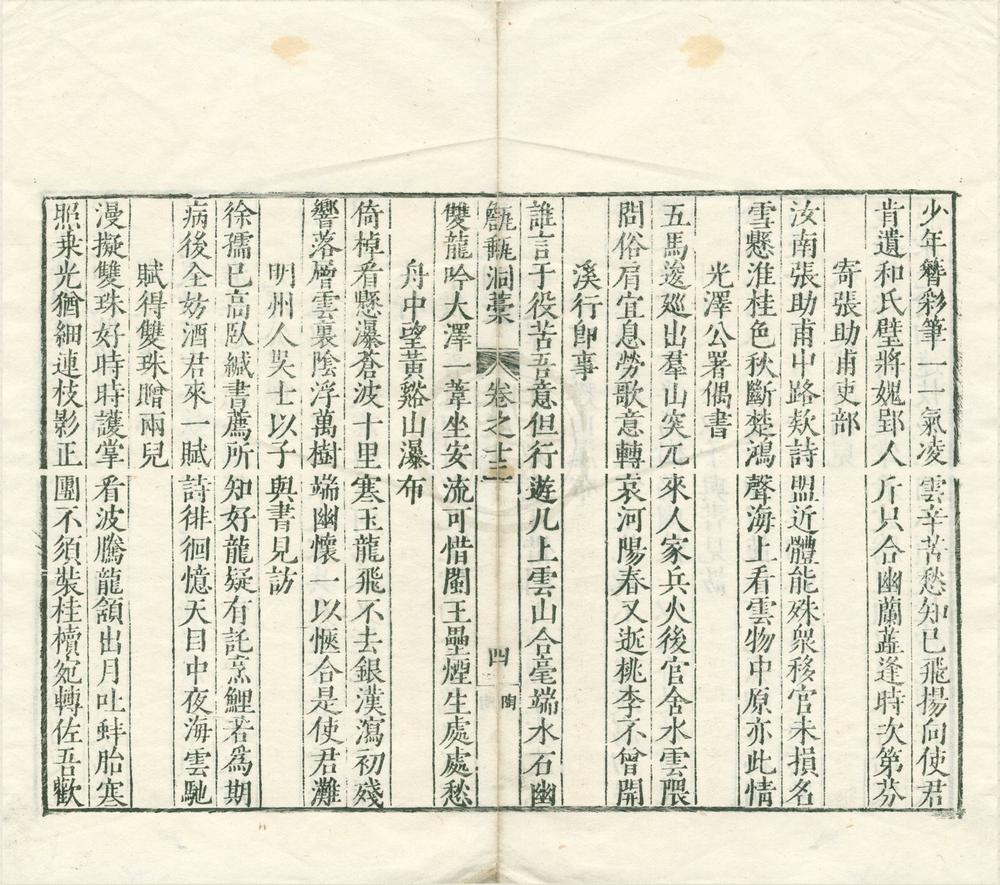 少年簪彩筆一一氣凌雲辛苦愁知已飛揚向使君
肯遺和氏璧將媿郢人斤只合幽蘭蘁逢時次第芬
寄張助甫吏部
汝南張助甫中路欵詩盟近體能殊衆移官未損名
雲懸淮桂色秋斷楚鴻聲海上看雲物中原亦此情
光澤公署偶書
五馬逶廵出羣山突兀來人家兵火後官舍水雲隈
問俗肩宜息勞歌意轉哀河陽春又逝桃李不曾開
溪行卽事
誰言于役苦吾意但行遊几上雲山合毫端水石幽
甔甀洞藁 卷之十三 四 陶
雙龍吟大澤一葦坐安流可惜閩王壘煙生處處愁
舟中望黃谿山瀑布
倚棹看懸瀑蒼波十里寒玉龍飛不去銀漢瀉初殘
響落層雲裏陰浮萬樹端幽懷一以愜合是使君灘
明州人吳士以子與書見訪
徐孺已高臥緘書薦所知好龍疑有託烹鯉若爲期
病後全妨酒君來一賦詩徘徊憶天目中夜海雲馳
賦得雙珠贈兩兒
漫擬雙珠好時時護掌看波騰龍頷出月吐蚌胎寒
照乗光猶細連枝影正團不須裝桂櫝宛轉佐吾歡